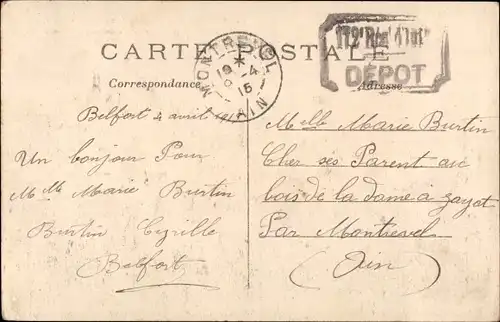 CARTE POSTALE
MONTREVEL
AIN
19
4
15
172e Rég. d'Inf.
DÉPOT
Correspondance
Adresse
Belfort 4 avril
Un bonjour Pour
Mlle Marie Burtin
Burtin Cyrille
Belfort
Melle Marie Burtin
Cher ses Parent au
bois de la dame à
Par Montrevel
(Ain)